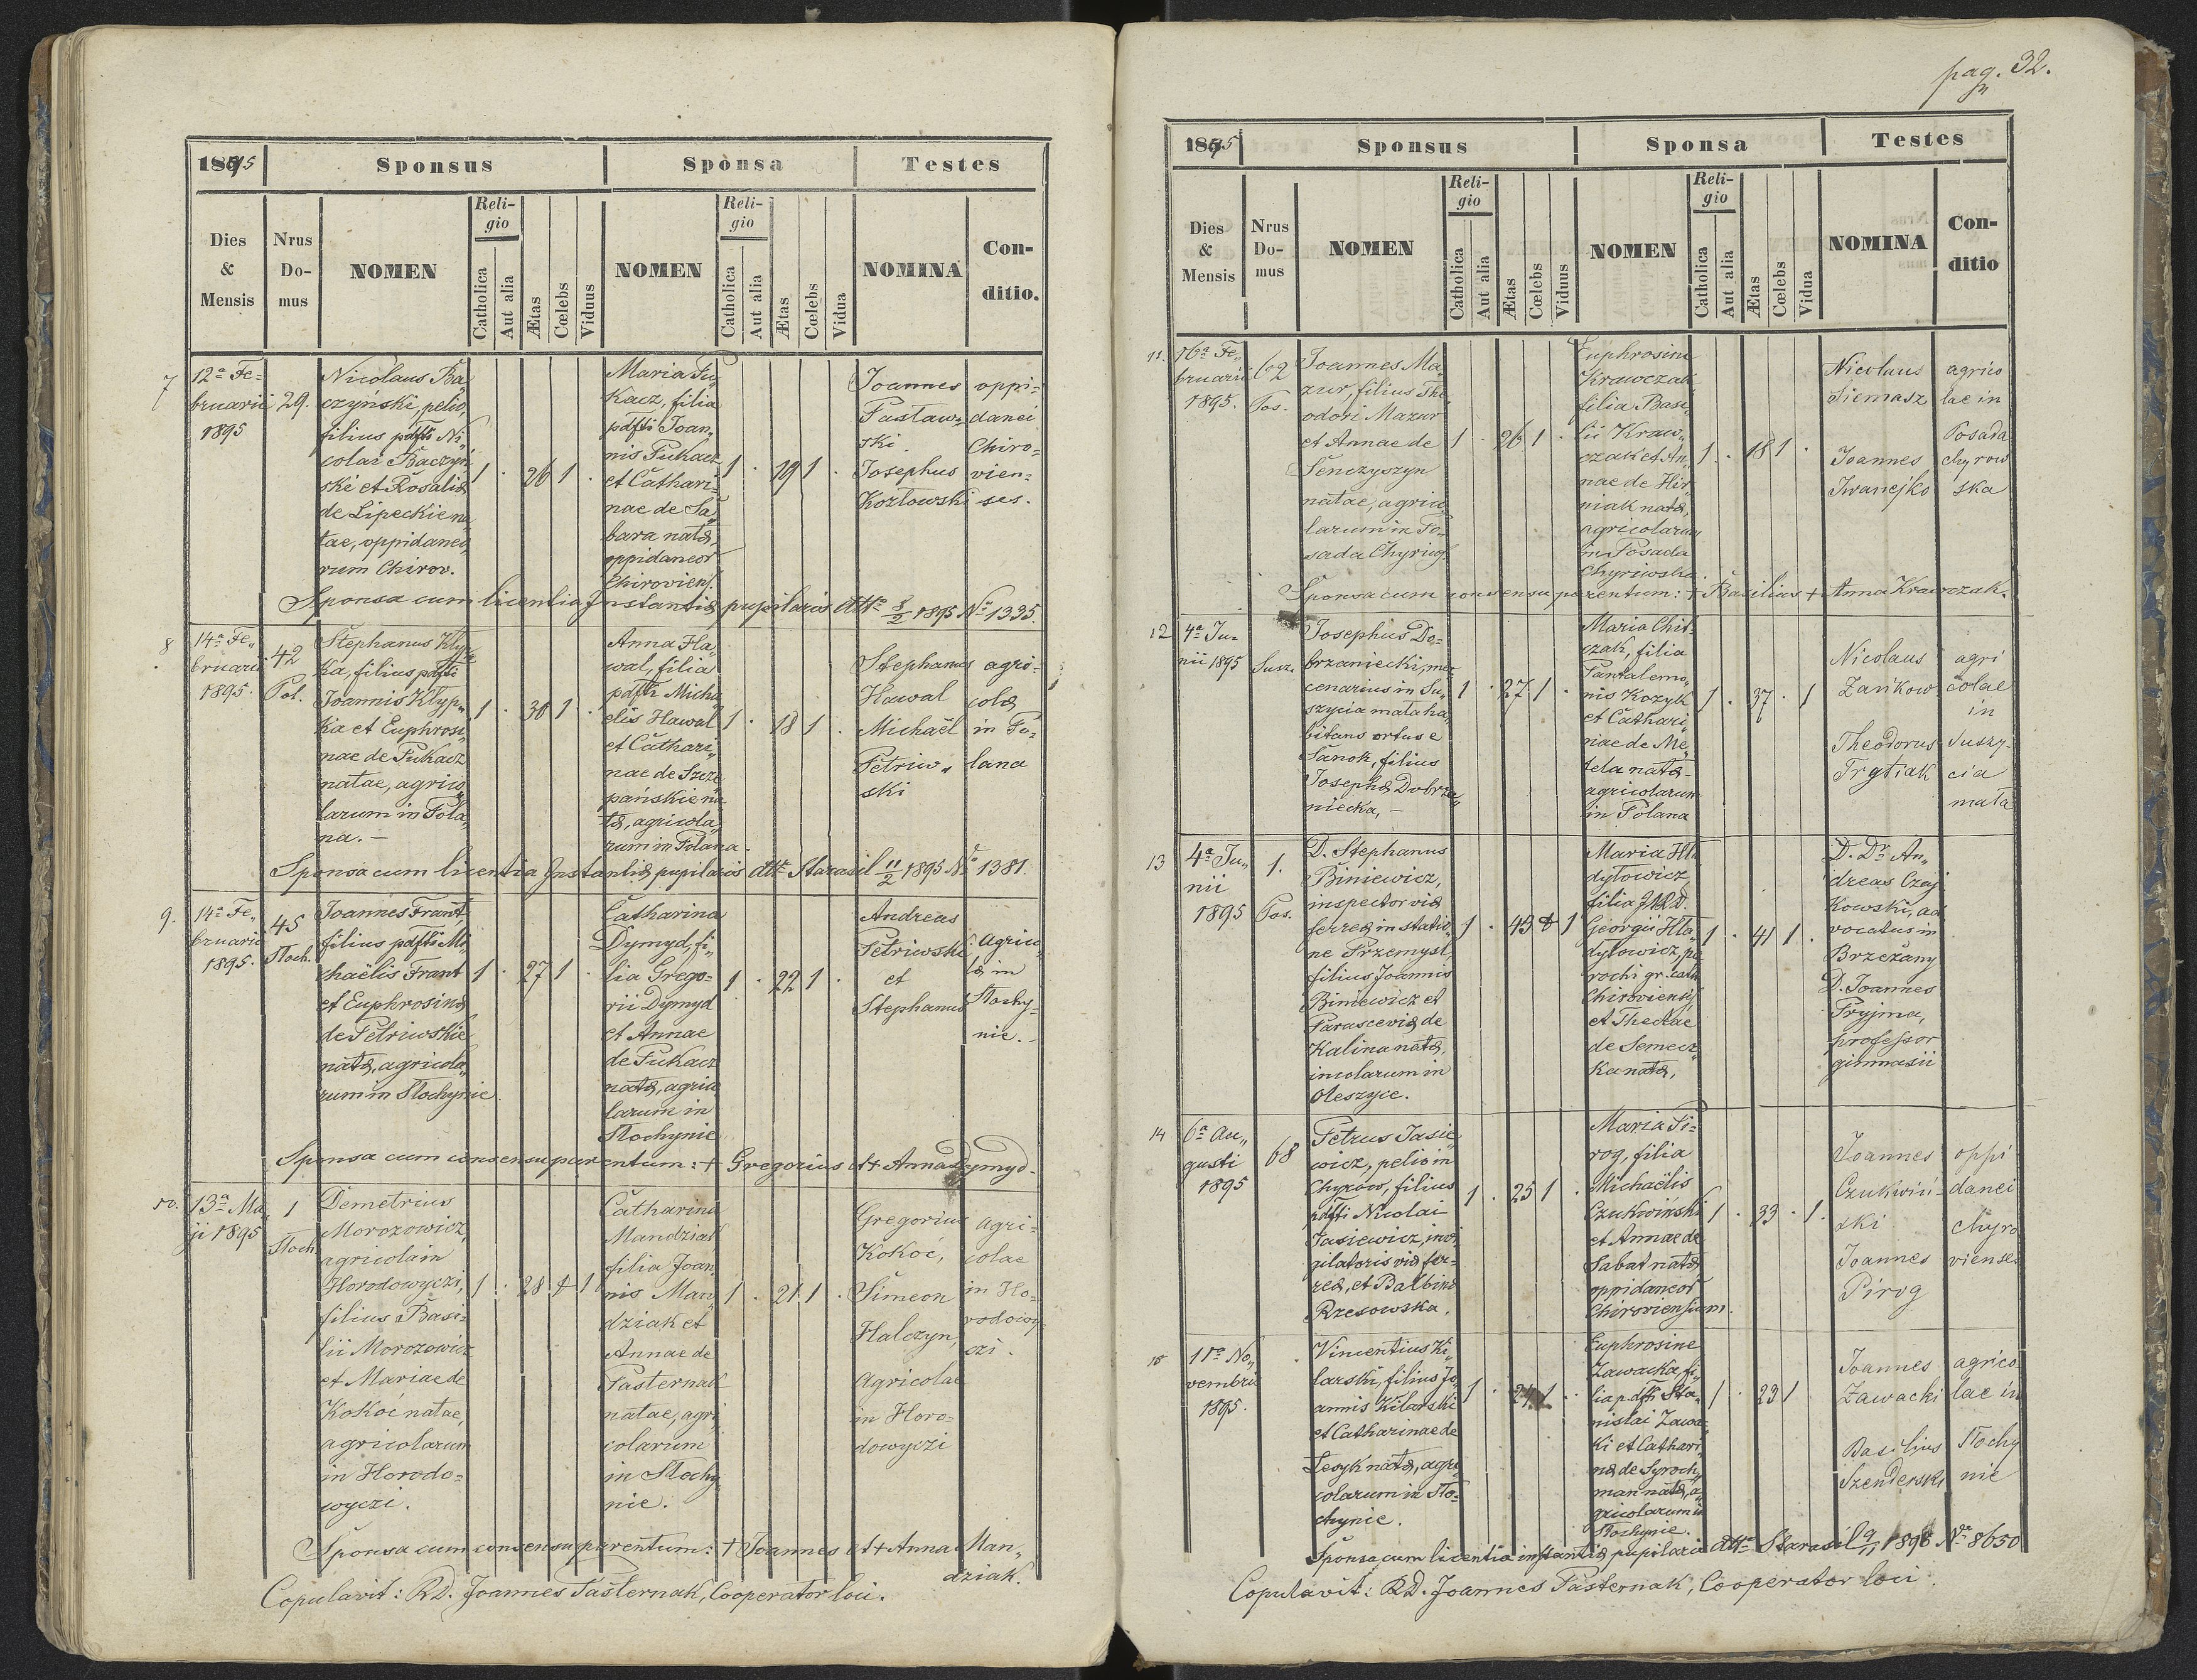 1895
Sponsus
Sponsa
Testes
Dies & Mensis
Nrus Do- mus
NOMEN
Reli- gio
Catholica
Aut alia
Ætas
Cœlebs
Viduus
NOMEN
Reli- gio
Catholica
Aut alia
Ætas
Cœlebs
Vidua
NOMINA
Con- ditio.
7
12a Fe=
bruarii
1895
29.
Nicolaus Ba„
czyński, pelio,
filius pdfti Ni„
colai Baczyń
ski et Rosaliæ
de Lipeckie na
tae, oppidaneo
rum Chirov.
1 · 26 1 ·
Maria Pu„
kacz, filia
pdfti Joan„
nis Pukacz
et Cathari=
nae de Sa„
bara natæ,
oppidaneor
Chiroviens.
1 · 19 1 ·
Joannes
Pastaw=
ski.
Josephus
Kozłowski
oppi=
danei
Chiro=
vien=
ses.
Sponsa cum licentia Instantiæ pupilaris dtto 8/2 1895 No 1335.
8
14a Fe„
bruarii
1895.
42
Pol.
Stephanus Klyp
ka, filius pdfti
Joannis Klyp„
ka et Euphrosi„
nae de Pukacz
natae, agrico„
larum in Pola„
na. —
1 · 30 1 ·
Anna Ha„
wal, filia
pdfti Micha
elis Hawal
et Cathari„
nae de Szcze
pańskie na
tæ, agricola„
rum in Polana.
1 · 18 1 ·
Stephanus
Hawal
Michaël
Petriw„
ski
agri=
colæ
in Po=
lana
Sponsa cum licentia Instantiæ pupilaris dtto Starasól 11/2 1895 No 1381.
9.
14a Fe„
bruarii
1895.
45
Sloch.
Joannes Frant,
filius pdfti Mi„
chaëlis Frant
et Euphrosinæ
de Petriwskie
natæ, agricola„
rum in Slochynie.
1 · 27 1 ·
Catharina
Dymyd, fi„
lia Grego=
rii Dymyd
et Annae
de Pukacz
natæ, agrico
larum in
Slochynie
1 · 22 1 ·
Andreas
Petriwski
et
Stephanus
Agrico„
læ in
Slochy=
nie.
Sponsa cum consensu parentum: + Gregorius et + Anna Dymyd.
10.
13a Ma„
ji 1895
1
Sloch.
Demetrius
Morozowicz,
agricola in
Horodowyczi,
filius Basi=
lii Morozowicz
et Mariae de
Kokoć natae,
agricolarum
in Horodo=
wyczi.
1 · 28 · 1
Catharina
Mandziak
filia Joan„
nis Man„
dziak et
Annae de
Pasternak
natae, agri„
colarum
in Slochy„
nie.
1 · 21 1 ·
Gregorius
Kokoć,
Simeon
Halczyn,
Agricolae
in Horo=
dowyczi
agri=
colae
in Ho=
rodowy=
czi.
Sponsa cum consensu parentum: + Joannes et + Anna Man„
dziak.
Copulavit: RD. Joannes Pasternak, Cooperator loci.
pag. 32.
1895
Sponsus
Sponsa
Testes
Dies & Mensis
Nrus Do- mus
NOMEN
Reli- gio
Catholica
Aut alia
Ætas
Cœlebs
Viduus
NOMEN
Reli- gio
Catholica
Aut alia
Ætas
Cœlebs
Vidua
NOMINA
Con- ditio
11.
16a Fe„
bruarii
1895.
62
Pos.
Joannes Ma„
zur, filius The„
odori Mazur
et Annae de
Senczyszyn
natae, agrico„
larum in Po„
sada Chyriws.
1 · 26 1 ·
Euphrosine
Krawczak
filia Basi„
lii Kraw„
czak et An„
nae de Hir„
niak natæ,
agricolarum
in Posada
Chyriwska
1 · 18 1 ·
Nicolaus
Siemasz
Joannes
Iwanejko
agrico
lae in
Posada
chyrow
ska
Sponsa cum consensu parentum: + Basilius + Anna Krawczak.
12
4a Ju=
nii 1895
Susz.
Josephus Do=
brzaniecki, mer
cenarius in Su„
szycia mała ha„
bitans ortus e
Sanok, filius
Josephæ Dobrza„
niecka, —
1 · 27 1 ·
Maria Chit=
czak, filia
Pantalemo„
nis Kozyk
et Cathari„
nae de Me„
tela natæ —
agricolarum
in Polana
1 · 37 · 1
Nicolaus
Zańkow
Theodorus
Trytiak
agri
colae
in
Suszy-
cia
mała
13
4a Ju„
nii
1895
1.
Pos.
D. Stephanus
Biniewicz,
inspector viæ
ferreæ in statio„
ne Przemyśl,
filius Joannis
Biniewicz et
Parasceviæ de
Kalina natæ,
incolarum in
Oleszyce.
1 · 43 · 1
Maria Hła
dyłowicz,
filia J.R.D.
Georgii Hła„
dyłowicz, pa
rochi gr. cath.
Chiroviensis,
et Theclae
de Semecz
ka natæ,
1 · 41 1 ·
D. Dr. An„
dreas Czaj
kowski, ad
vocatus in
Brzeżany
D. Joannes
Pryjma,
professor
gimnasii
14
6a Au„
gusti
1895
68
Petrus Jasie„
wicz, pelio in
Chyrów, filius
pdfti Nicolai
Jasiewicz, invi„
gilatoris viæ fer=
reæ, et Balbinæ
Rzesowska,
1 · 25 1 ·
Maria Pi=
rog, filia
Michaëlis
Czukwiński
et Annae de
Sabat natæ
oppidaneor
Chiroviensium.
1 · 33 · 1 ·
Joannes
Czukwiń=
ski
Joannes
Pirog
oppi
danei
chyro
vienses
15
11a No„
vembris
1895.
Vincentius Ki„
larski, filius Jo„
annis Kilarski
et Catharinae de
Lesyk natæ, agri„
colarum in Slo=
chynie.
1 · 24 1 ·
Euphrosine
Zawacka, fi„
lia pdfti Sta„
nislai Zawac
ki et Cathari„
næ de Syroch„
man natæ, a„
gricolarum in
Slochynie.
1 · 23 1
Joannes
Zawacki
Basilius
Szenderski
agrico
lae in
Slochy
nie
Sponsa cum licentia instantiæ pupilaris dtto Starasól 9/11 1895 No 8650
Copulavit: RD. Joannes Pasternak, Cooperator loci.